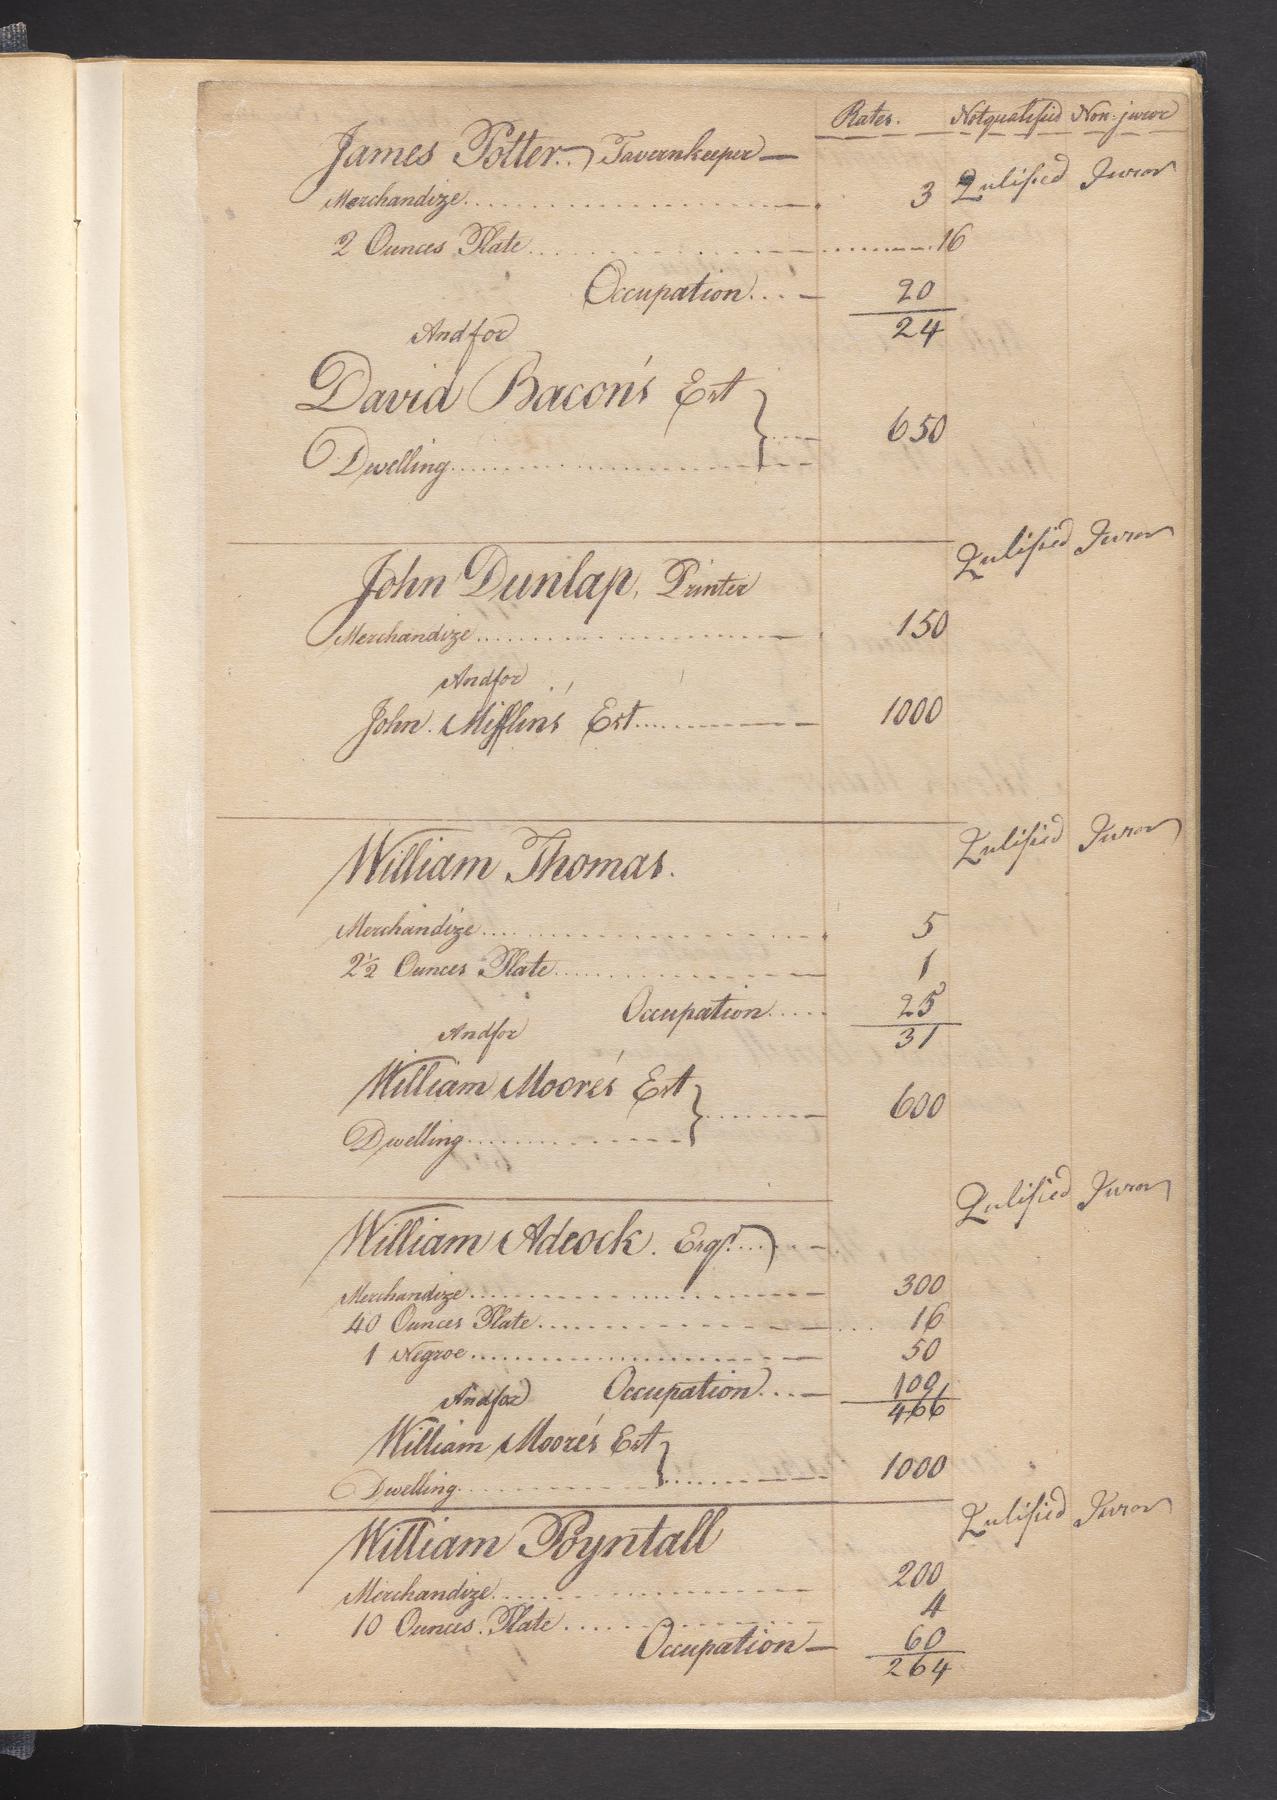 Rates. Notqualified Non-juror
James Potter.. Tavernkeeper
Qulified Juror
Merchandize 3
2 Ounces Plate 16
Occupation 20
24
And for
David Bacon's Est
650
Dwelling
Qulified Juror
John Dunlap, Printer
Merchandize 150
And for
John Mifflin's Est 1000
Qulified Juror
William Thomas.
Merchandize 5
2½ Ounces Plate 1
Occupation 25
And for 31
William Moore's Est
600
Dwelling
Qulified Juror
William Adcock. Esqr.
Merchandize 300
40 Ounces Plate 16
1 Negroe 50
And for Occupation 100
466
William Moore's Est
1000
Dwelling
Qulified Juror
William Poyntall
Merchandize 200
10 Ounces. Plate 4
Occupation 60
264